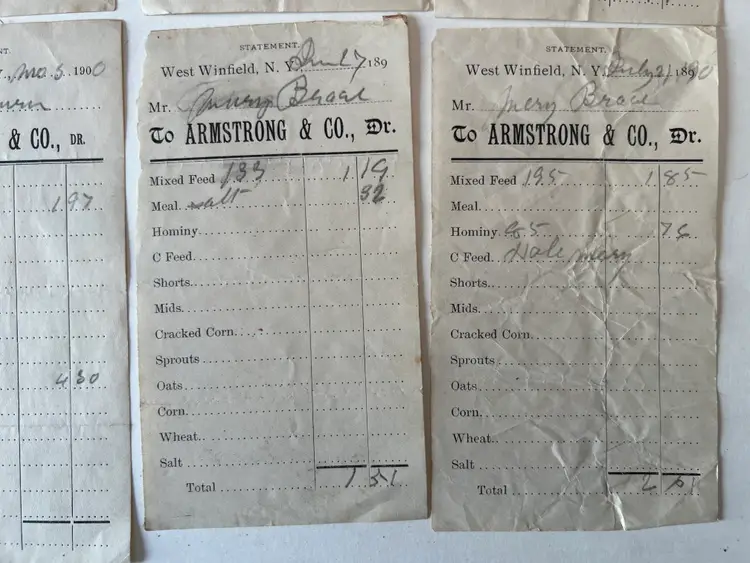 NT.
, Ma 5 1900
& CO., DR.
1 97
4 30
STATEMENT.
West Winfield, N. Y. 17 189
Mr. Mery Brace
To ARMSTRONG & CO., Dr.
Mixed Feed 133 1 19
Meal salt 32
Hominy
C Feed
Shorts
Mids.
Cracked Corn
Sprouts
Oats
Corn
Wheat
Salt
Total 1 51
STATEMENT.
West Winfield, N. Y. July 21 1890
Mr. Mery Brace
To ARMSTRONG & CO., Dr.
Mixed Feed 195 1 85
Meal
Hominy 76
C Feed
Shorts
Mids.
Cracked Corn
Sprouts
Oats
Corn
Wheat
Salt
Total 2 61